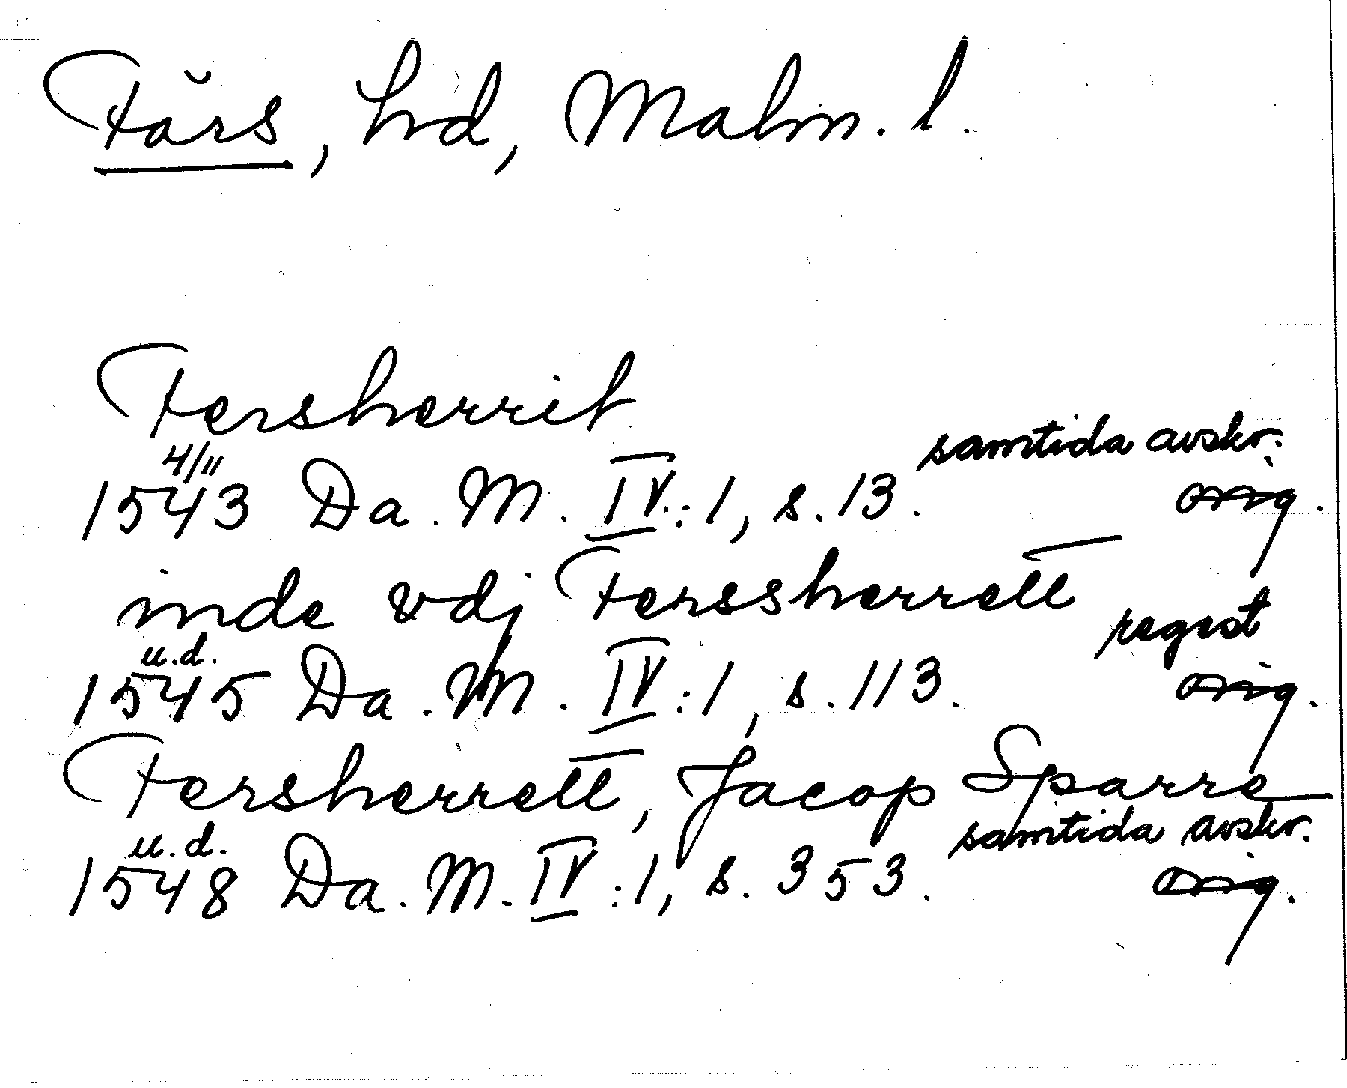 Färs, hd, Malm. l.
Fersherrit
4/11 samtida avskr.
1543 Da. M. IV:1, s. 13. orig.
inde vdj Ferssherrett
u.d. regest
1545 Da. M. IV:1, s. 113. orig.
Fersherrett, Jacop Sparre
u.d. samtida avskr.
1548 Da. M. IV:1, s. 353. orig.